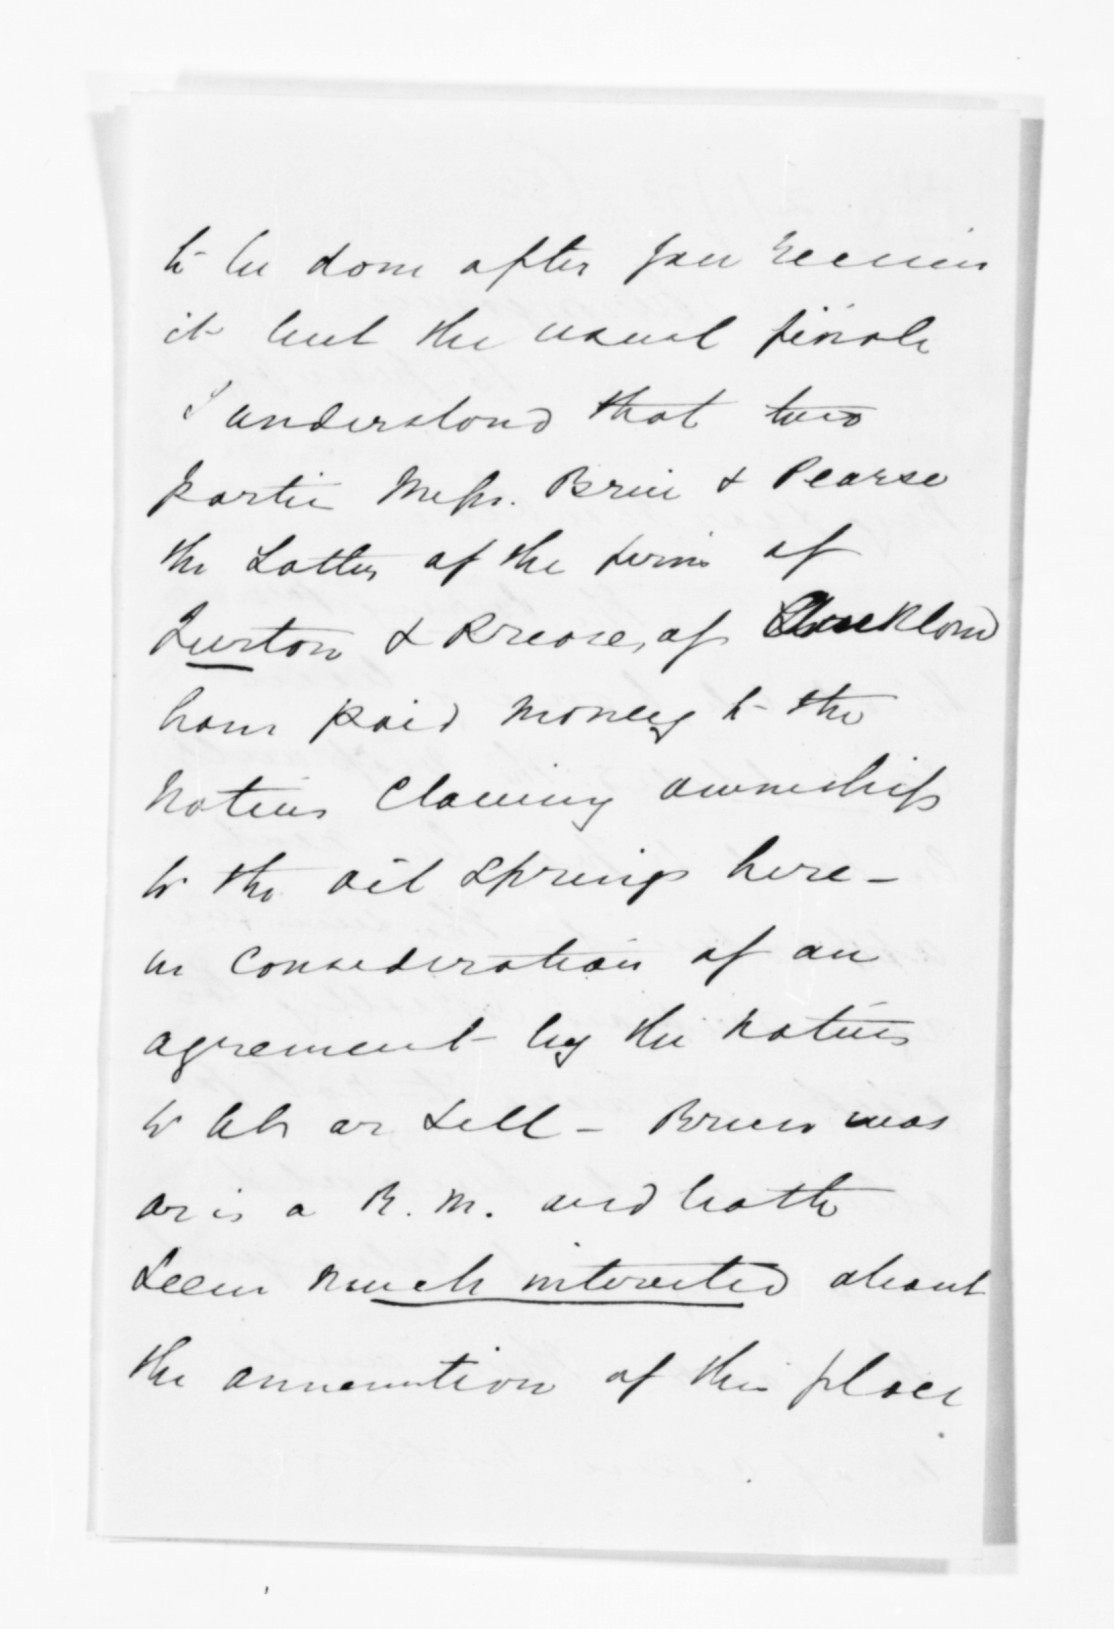 to be done after you receive
it but the usual finale
I understand that two
parties Messrs. Brice & Pearse
the latter of the firm of
& Pearse, of Auckland
have paid money to the
natives claiming ownership
to the oil springs here -
in consideration of an
agreement by the natives
to let or sell - Brice was
or is a R. M. and both
seem much interested about
the annexation of this place